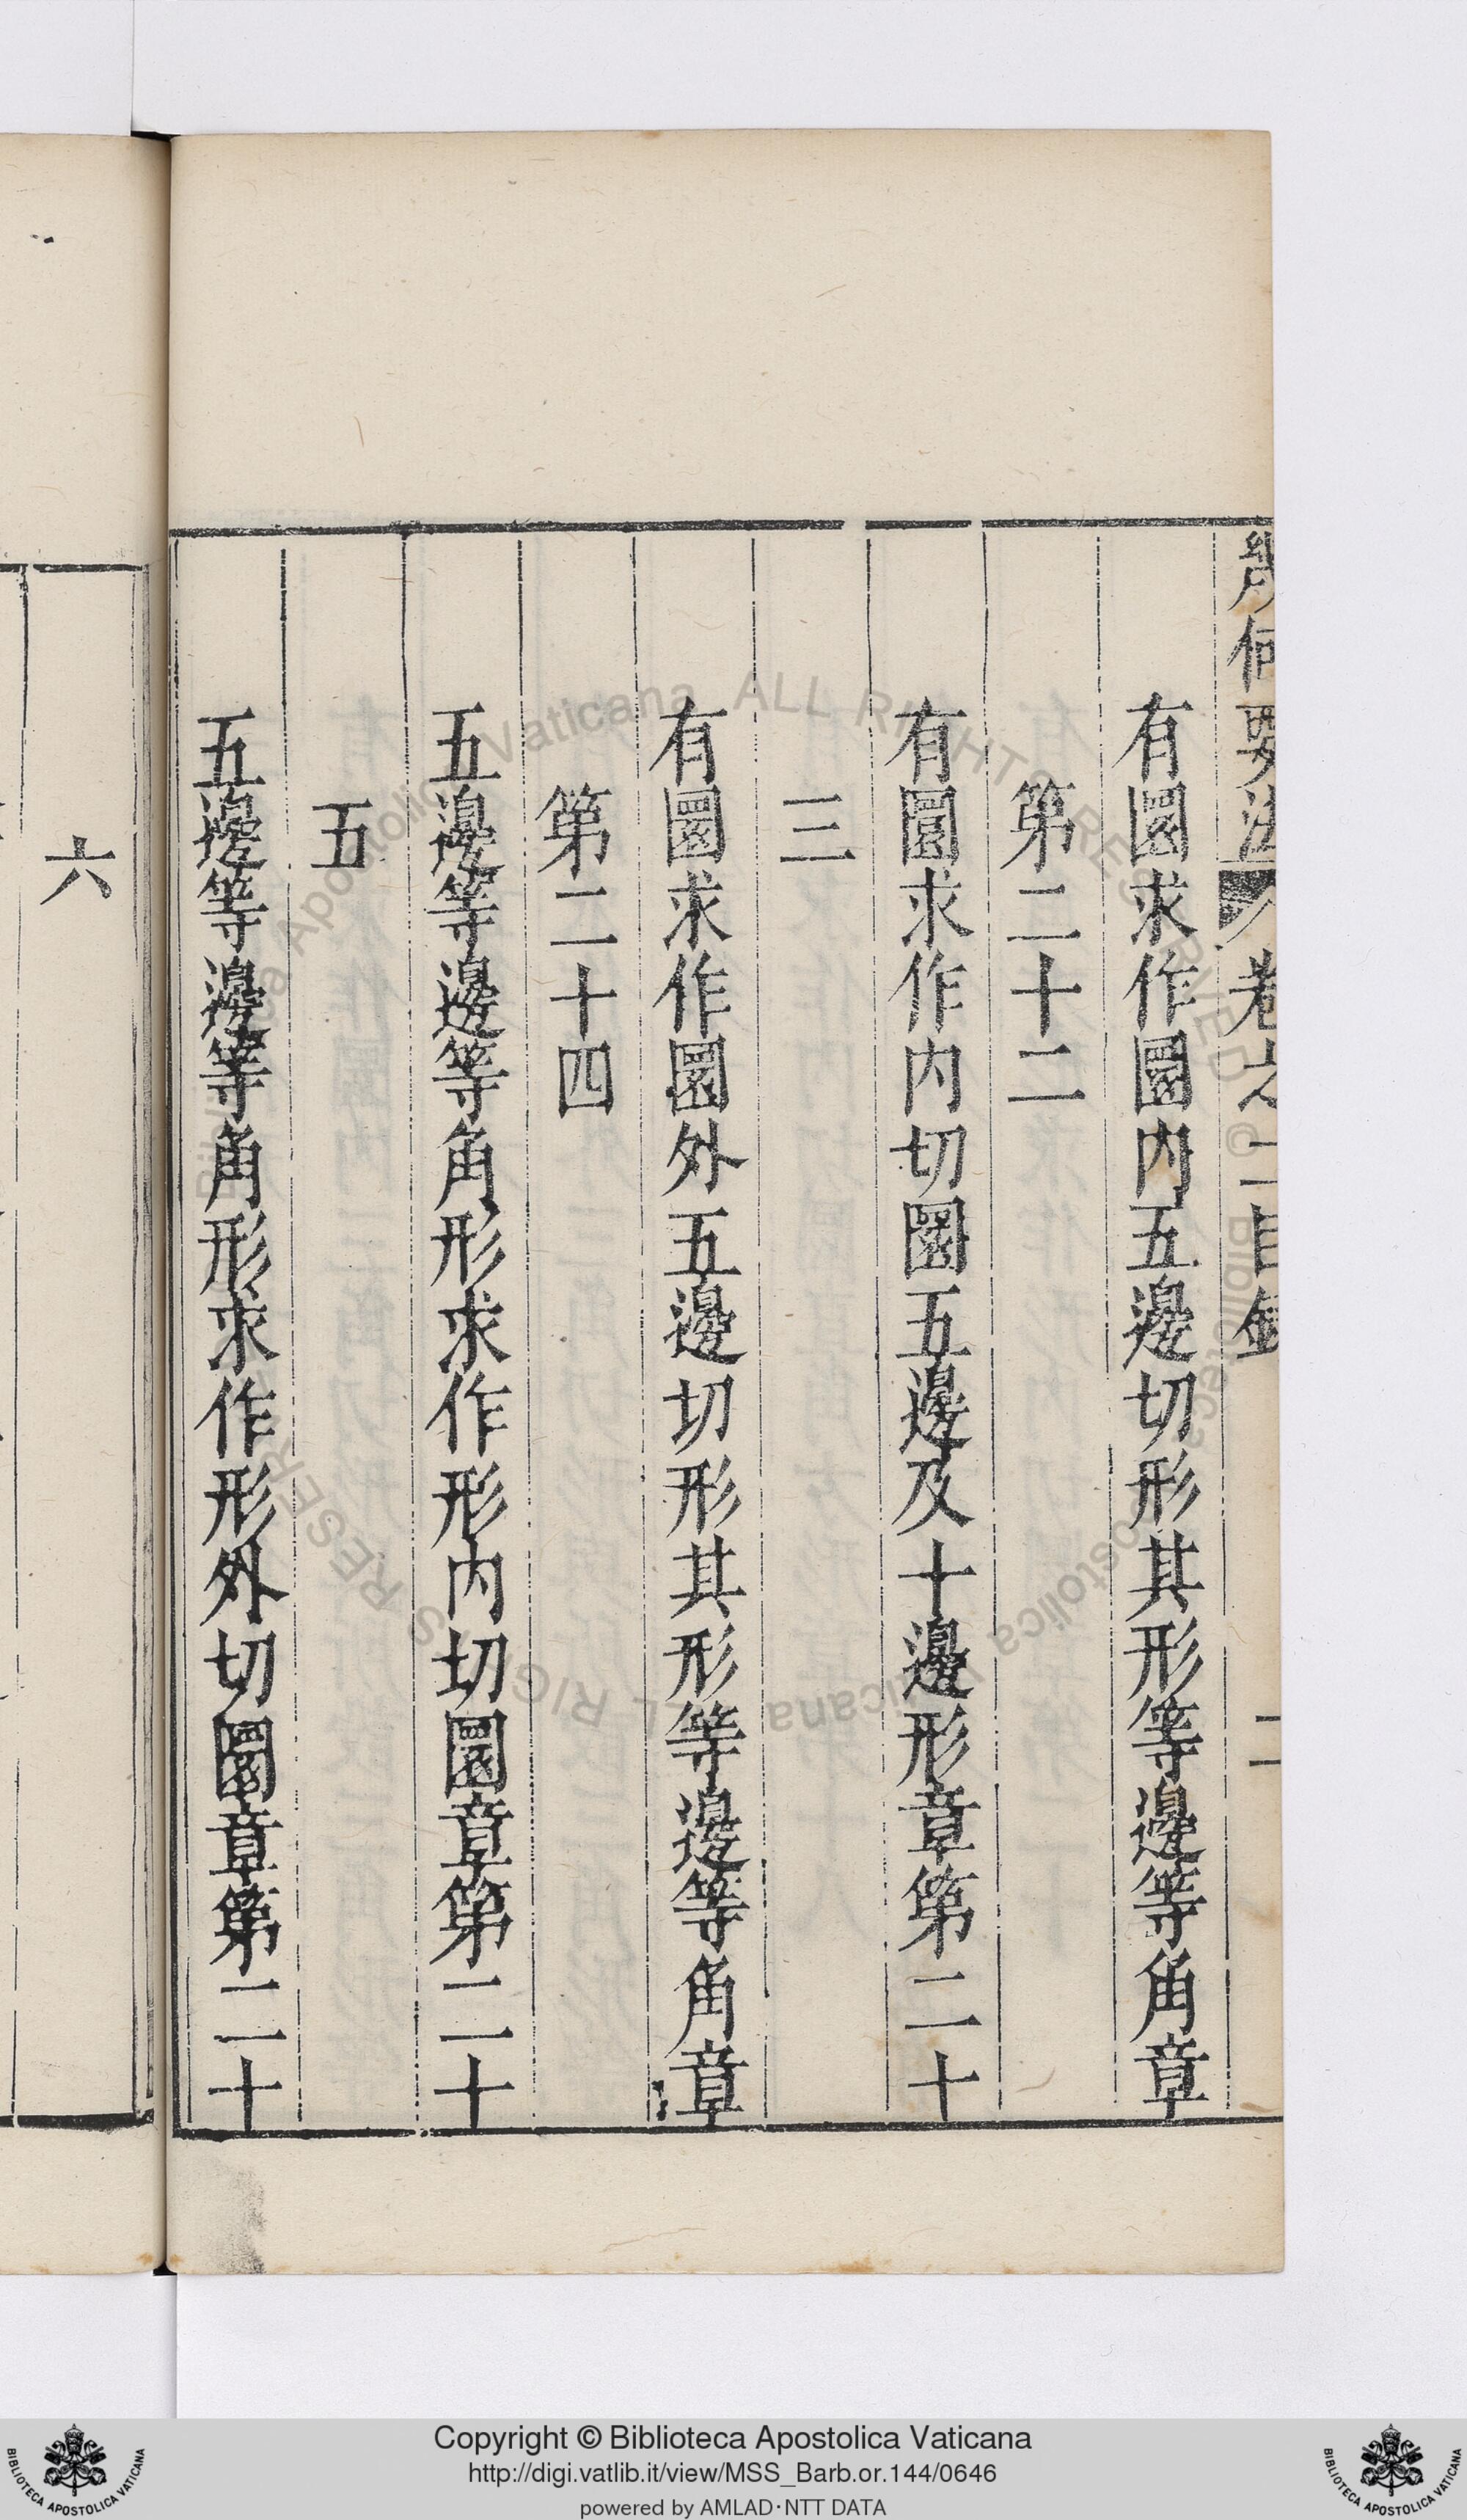 幾何要法 卷之二目錄 二
有圜求作圜内五邊切形其形等邊等角章
第二十二
有圜求作内切圜五邊及十邊形章第二十
三
有圜求作圜外五邊切形其形等邊等角章
第二十四
五邊等邊等角形求作形内切圜章第二十
五
五邊等邊等角形求作形外切圜章第二十
六
Copyright © Biblioteca Apostolica Vaticana
http://digi.vatlib.it/view/MSS_Barb.or.144/0646
powered by AMLAD·NTT DATA
BIBLIOTECA APOSTOLICA VATICANA
BIBLIOTECA APOSTOLICA VATICANA